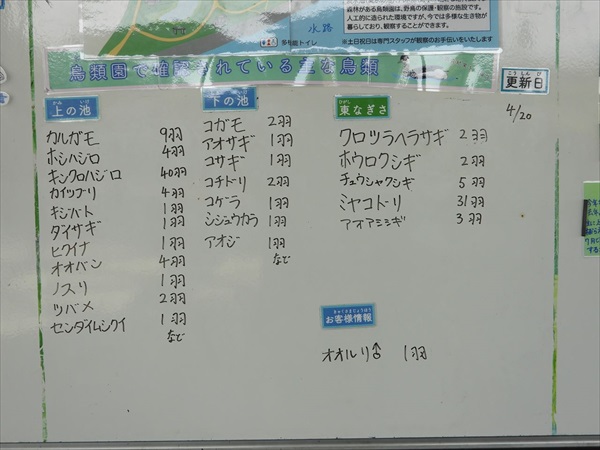 森林がある鳥類園は、野鳥の保護・観察の施設です。
人工的に造られた環境ですが、今では多様な生き物が
暮らしており、観察することができます。
※土日祝日は専門スタッフが観察のお手伝いをいたします
水路
多機能トイレ
鳥類園で確認されている主な鳥類
こうしんび
更新日
4/20
かみ いけ
上の池
カルガモ 9羽
ホシハジロ 4羽
キンクロハジロ 40羽
カイツブリ 4羽
キジバト 1羽
ダイサギ 1羽
ヒクイナ 1羽
オオバン 4羽
ノスリ 1羽
ツバメ 2羽
センダイムシクイ 1羽
など
しも いけ
下の池
コガモ 2羽
アオサギ 1羽
コサギ 1羽
コチドリ 2羽
コゲラ 1羽
シジュウカラ 1羽
アオジ 1羽
など
ひがし
東なぎさ
クロツラヘラサギ 2羽
ホウロクシギ 2羽
チュウシャクシギ 5羽
ミヤコドリ 31羽
アオアシシギ 3羽
きゃくさまじょうほう
お客様情報
オオルリ♂ 1羽